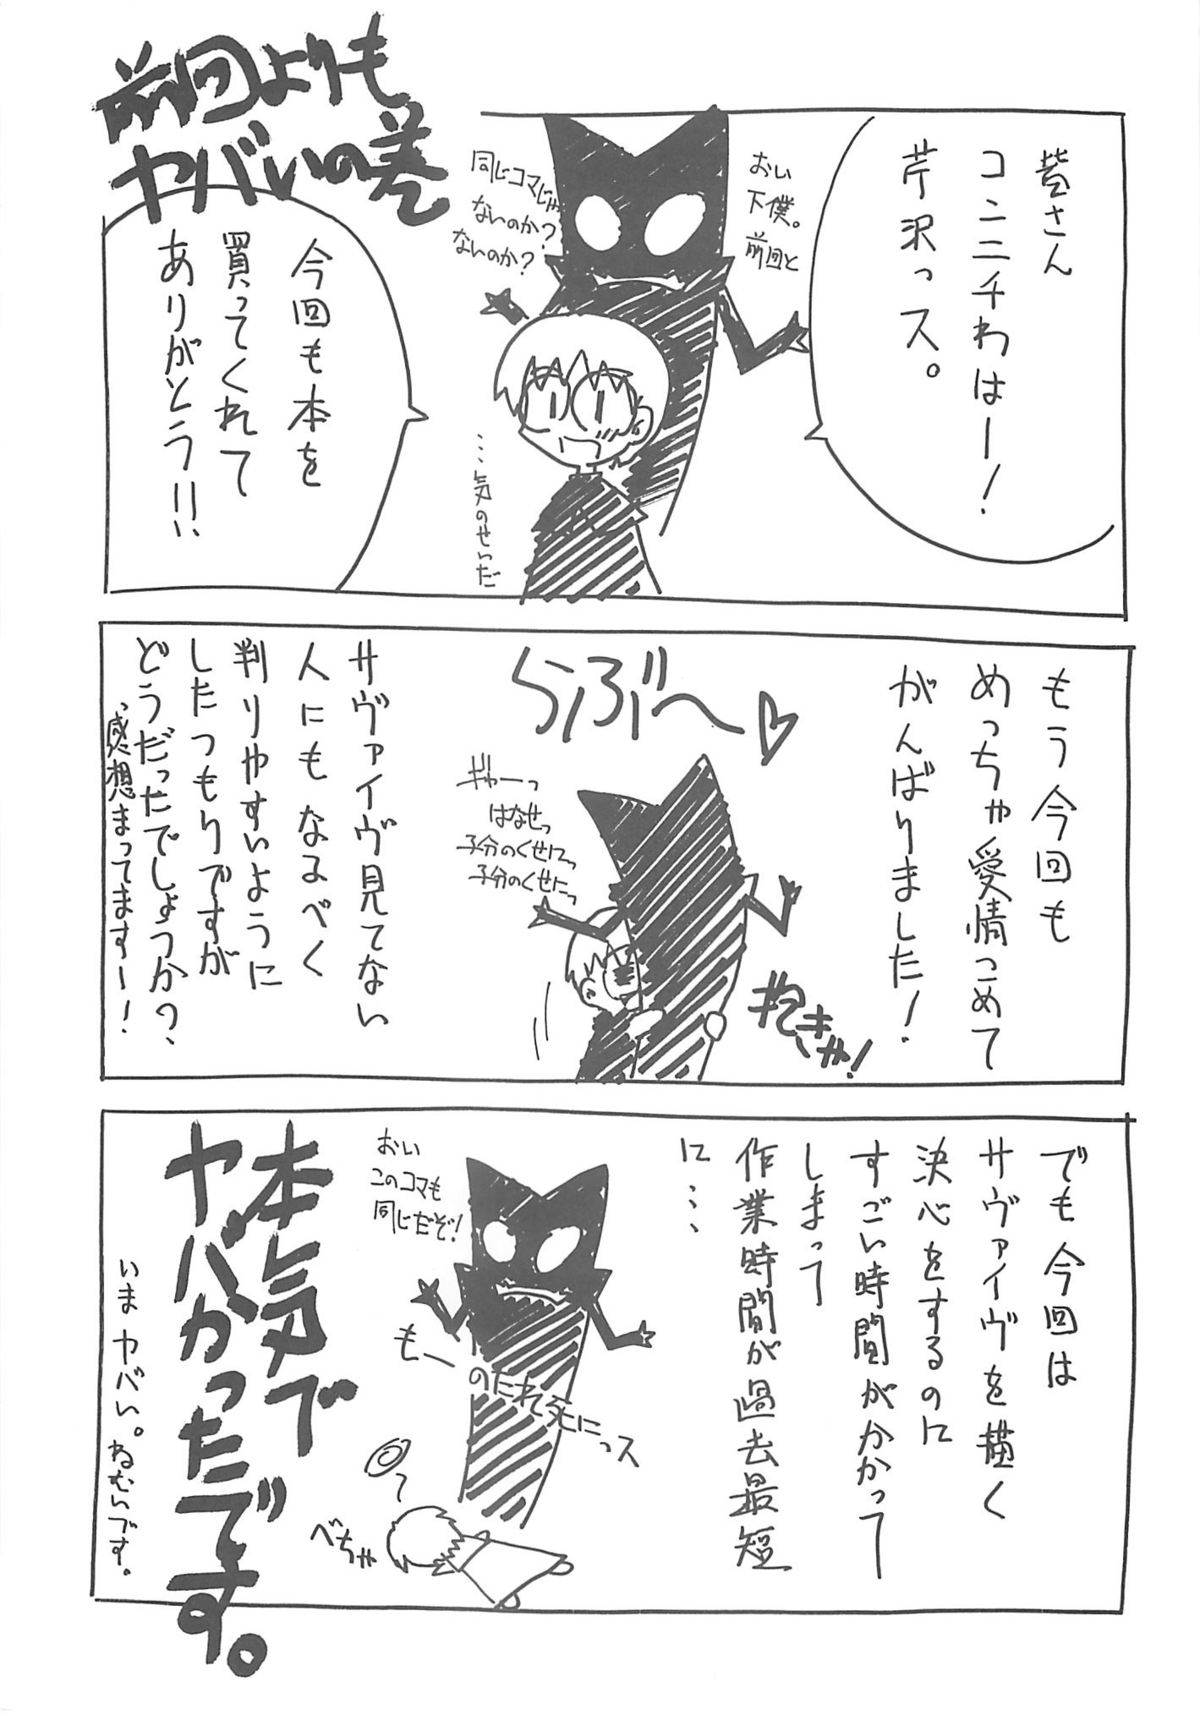 前回よりも
ヤバいの巻
皆さん
コンニチわはー!
芹沢っス。
おい
下僕。
前回と
同じコマじゃ
ないのか?
ないのか?
…気のせいだ
今回も本を
買ってくれて
ありがとう!!
もう今回も
めっちゃ愛情こめて
がんばりました!
らぶ〜♡
ぎゃーっ
はなせっ
子分のくせにっ
子分のくせにっ
サヴァイヴ見てない
人にもなるべく
判りやすいように
したつもりですが
どうだったでしょうか?
感想まってますー!
でも今回は
サヴァイヴを描く
決心をするのに
すごい時間がかかって
しまって
作業時間が過去最短
に…
おい
このコマも
同じだぞ!
もー
のたれ死にっス
べちゃ
本気で
ヤバかったです。
いまヤバい。ねむいです。